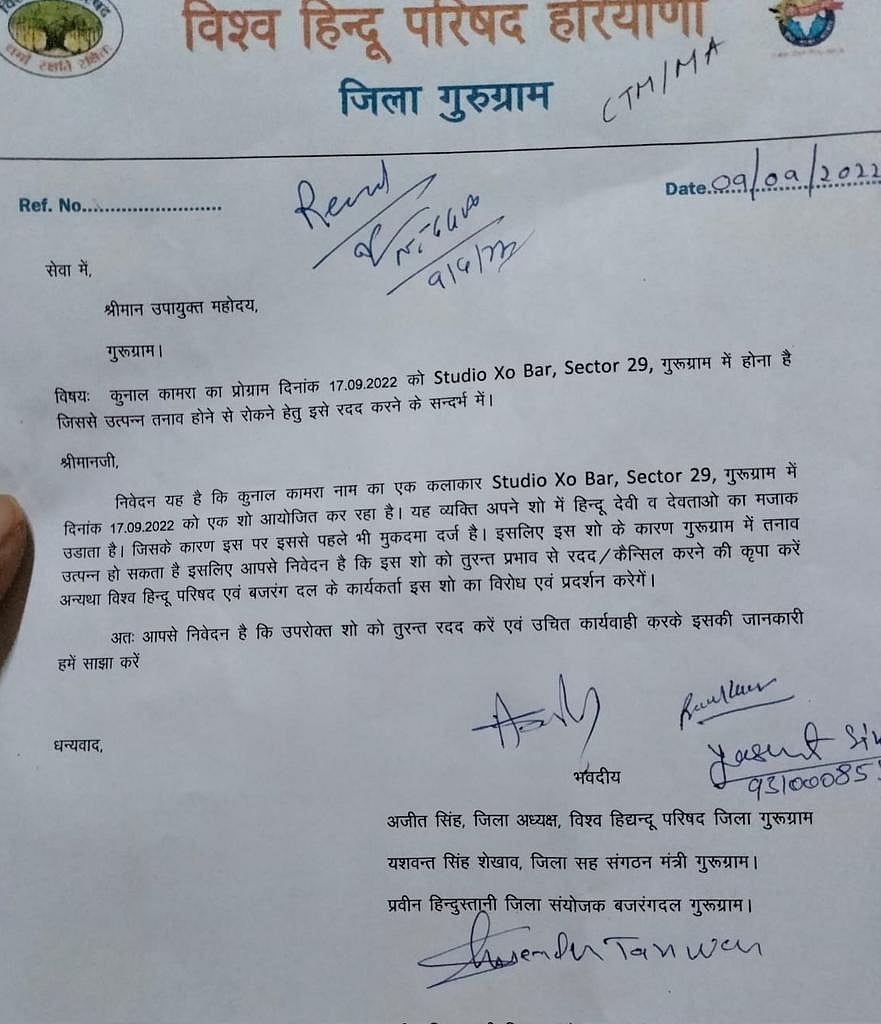 विश्व हिन्दू परिषद हरियाणा
जिला गुरुग्राम
CTM/MA
Ref. No..............................
Date..09/09/2022
सेवा में,
श्रीमान उपायुक्त महोदय,
गुरूग्राम।
विषयः कुनाल कामरा का प्रोग्राम दिनांक 17.09.2022 को Studio Xo Bar, Sector 29, गुरूग्राम में होना है
जिससे उत्पन्न तनाव होने से रोकने हेतु इसे रदद करने के सन्दर्भ में।
श्रीमानजी,
निवेदन यह है कि कुनाल कामरा नाम का एक कलाकार Studio Xo Bar, Sector 29, गुरूग्राम में
दिनांक 17.09.2022 को एक शो आयोजित कर रहा है। यह व्यक्ति अपने शो में हिन्दू देवी व देवताओ का मजाक
उडाता है। जिसके कारण इस पर इससे पहले भी मुकदमा दर्ज है। इसलिए इस शो के कारण गुरूग्राम में तनाव
उत्पन्न हो सकता है इसलिए आपसे निवेदन है कि इस शो को तुरन्त प्रभाव से रदद/कैन्सिल करने की कृपा करें
अन्यथा विश्व हिन्दू परिषद एवं बजरंग दल के कार्यकर्ता इस शो का विरोध एवं प्रदर्शन करेगें।
अतः आपसे निवेदन है कि उपरोक्त शो को तुरन्त रदद करें एवं उचित कार्यवाही करके इसकी जानकारी
हमें साझा करें
धन्यवाद,
भवदीय
93100085
अजीत सिंह, जिला अध्यक्ष, विश्व हिद्यन्दू परिषद जिला गुरूग्राम
यशवन्त सिंह शेखाव, जिला सह संगठन मंत्री गुरूग्राम।
प्रवीन हिन्दुस्तानी जिला संयोजक बजरंगदल गुरूग्राम।
Tanwar